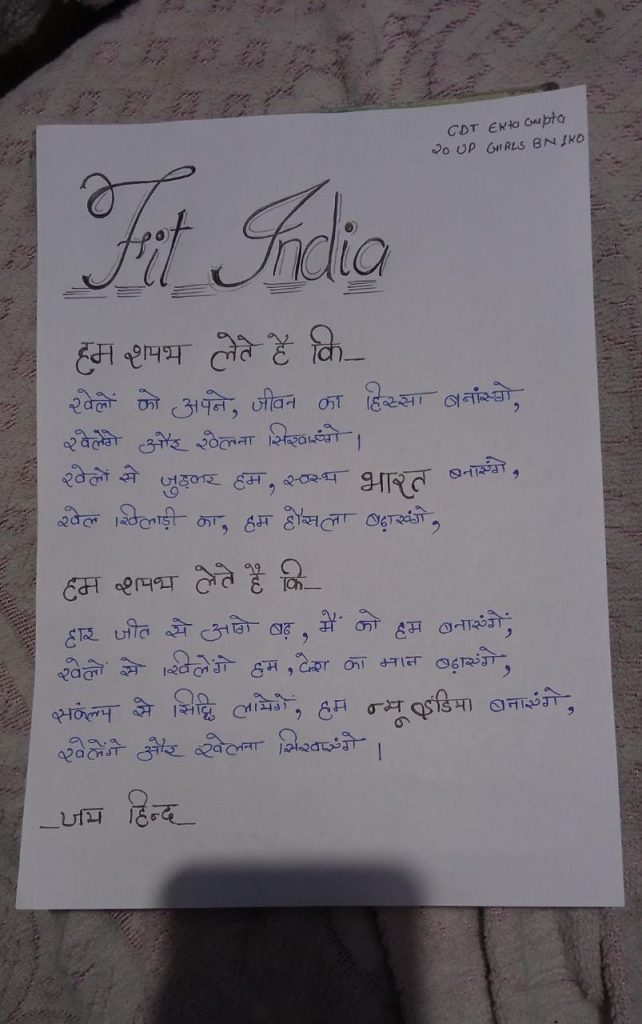 CDT Ekta Gupta
20 UP GIRLS BN LKO
Fit India
हम शपथ लेते है कि_
खेलों को अपने, जीवन का हिस्सा बनाएंगे,
खेलेंगे और खेलना सिखाएंगे।
खेलों से जुड़कर हम, स्वस्थ भारत बनाएंगे,
खेल खिलाड़ी का, हम हौसला बढ़ाएंगे,
हम शपथ लेते है कि_
हार जीत से आगे बढ़, मैं को हम बनाएंगें,
खेलों से खिलेंगे हम, देश का मान बढ़ाएंगे,
संकल्प से सिद्धि लायेगे, हम न्यू इंडिया बनाएंगे,
खेलेंगे और खेलना सिखाएंगे।
_जय हिन्द_